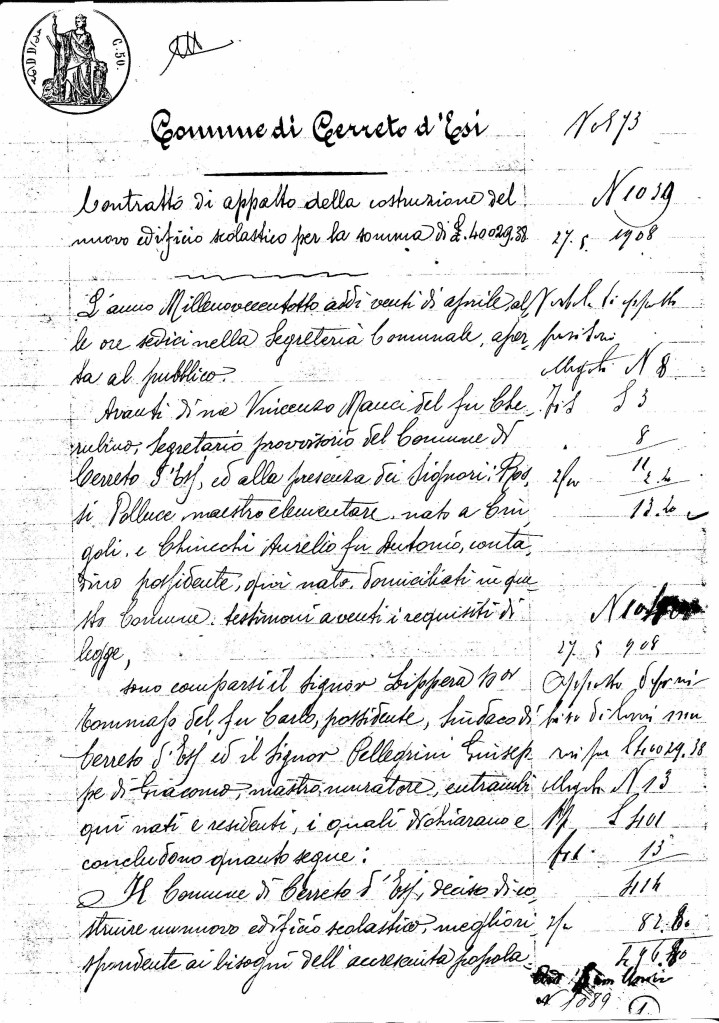 C. 50.
Comune di Cerreto d'Esi
Contratto di appalto della costruzione del
nuovo edificio scolastico per la somma di £. 40029.38
L'anno Millenovecentotto addì venti di aprile, al
le ore sedici nella Segreteria Comunale, aper
ta al pubblico.
Avanti di me Vincenzo Mauci del fu Che
rubino, Segretario provvisorio del Comune di
Cerreto d'Esi, ed alla presenza dei Signori: Ros
si Polluce, maestro elementare, nato a Cin
goli, e Chiucchi Aurelio fu Antonio, conta
dino possidente, qui nato, domiciliati in que
sto Comune, testimoni aventi i requisiti di
legge,
sono comparsi il Signor Lippera
Tommaso del fu Carlo, possidente, Sindaco di
Cerreto d'Esi ed il Signor Pellegrini Giusep
pe di Giacomo, mastro muratore, entrambi
qui nati e residenti, i quali dichiarano e
concludono quanto segue:
Il Comune di Cerreto d'Esi, deciso di co
struire un nuovo edificio scolastico, meglio ri
spondente ai bisogni dell'accresciuta popola
N 1039
27. 5 1908
N 8
L 3
8
11
2.20
13.20
27 5 908
L 40029.38
N 13
L 401
13
414
82.80
496.80
N 1089
1